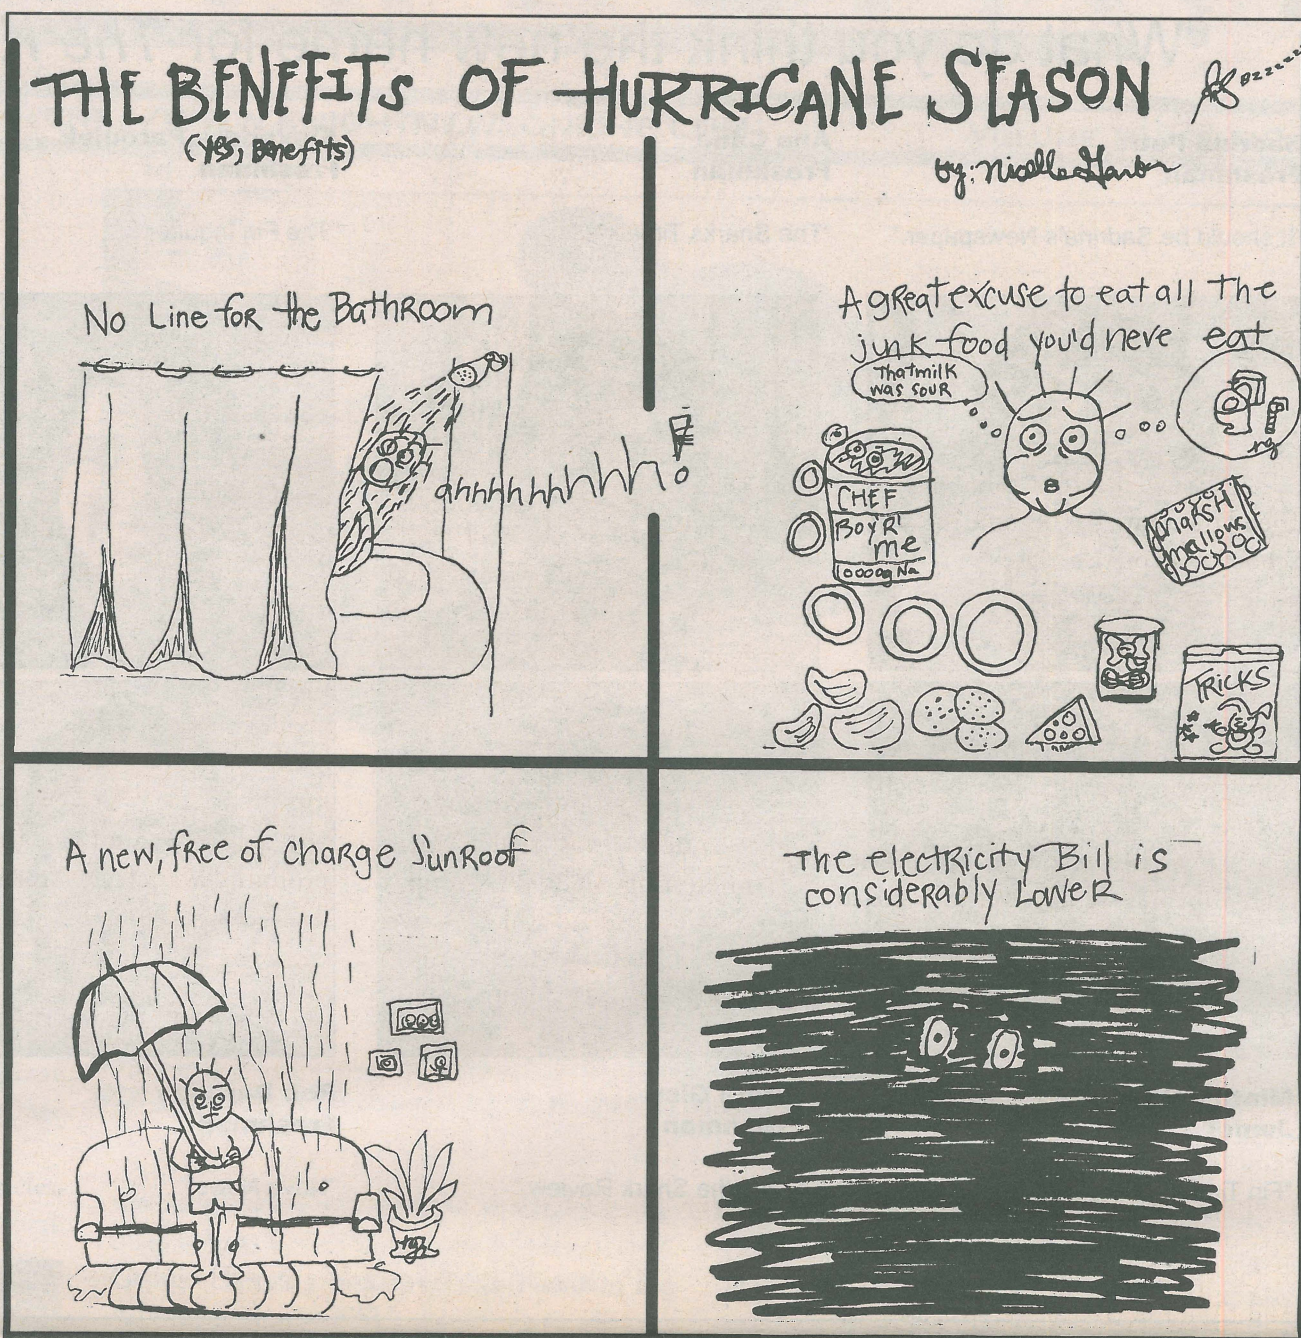 THE BENEFITS OF HURRICANE SEASON
(yes, Benefits)
by: Nicolle Garber
No Line for the Bathroom
ahhhhhhhhhh!
A great excuse to eat all the
junk food you'd neve eat
That milk
was sour
CHEF
BOYR'
me
0000g Na
marsh
mallows
TRICKS
ng
A new, free of charge Sunroof
ng
The electricity Bill is
considerably Lower